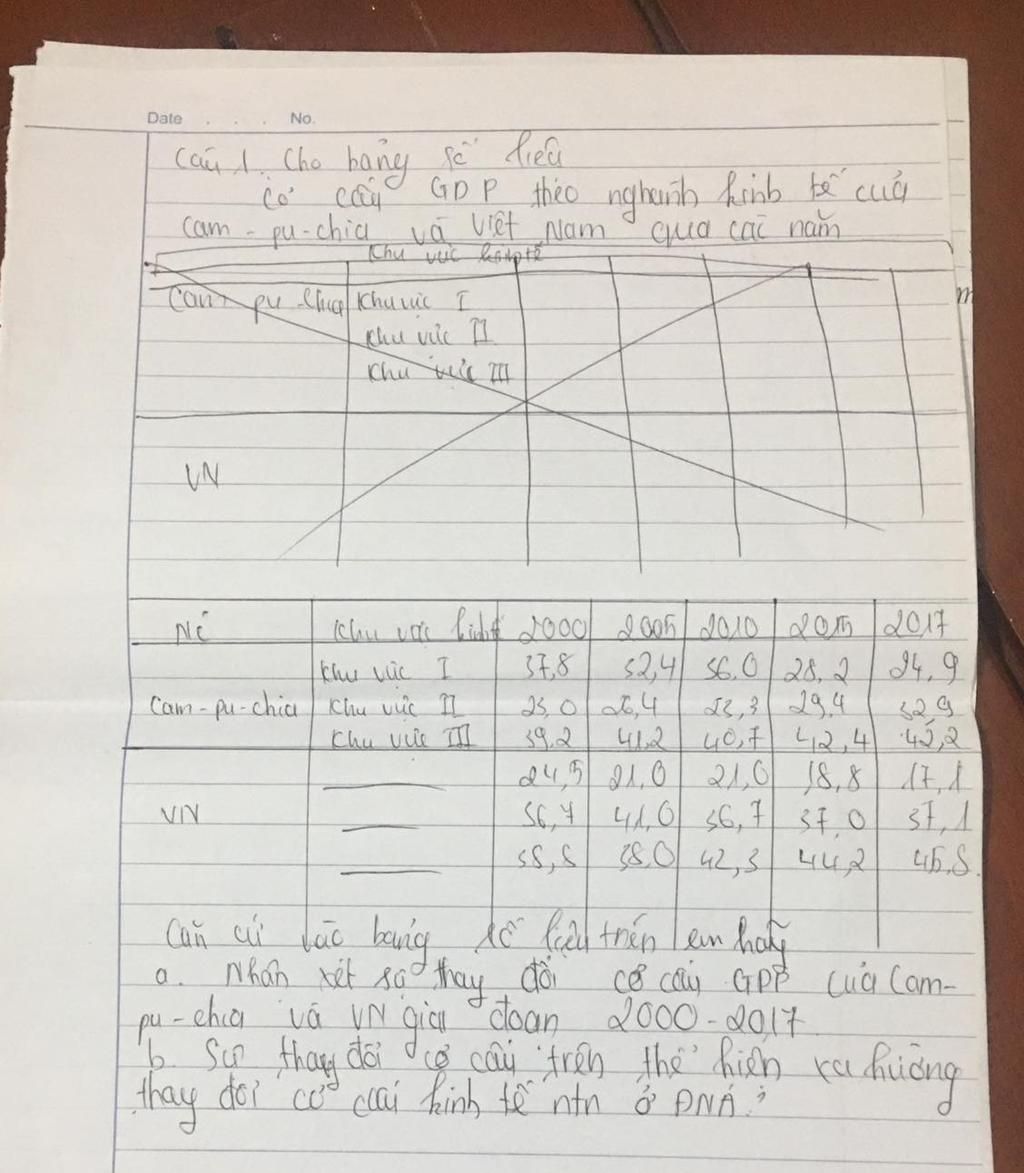 Date . . . No.
Câu 1. Cho bảng số liệu
Cơ cấu GDP theo nghanh kinh tế của
Cam - pu - chia và Việt Nam qua các năm
Khu vực kinh tế
Cam - pu chia Khu vực I
Khu vực II
Khu vực III
VN
Nc Khu vực kinh tế 2000 2005 2010 2015 2017
Khu vực I 37,8 32,4 36,0 28,2 24,9
Cam-pu-chia Khu vực II 23,0 26,4 23,3 29,4 32,9
Khu vực III 39,2 41,2 40,7 42,4 42,2
24,5 21,0 21,0 18,8 17,1
VN 36,7 41,0 36,7 37,0 37,1
38,8 38,0 42,3 44,2 45,8
Căn cứ vào bảng số liệu trên em hãy
a. Nhận xét sự thay đổi cơ cấu GDP của Cam-
pu-chia và VN giai đoạn 2000-2017
b. Sự thay đổi cơ cấu trên thể hiện xu hướng
thay đổi cơ cấu kinh tế ntn ở ĐNA?